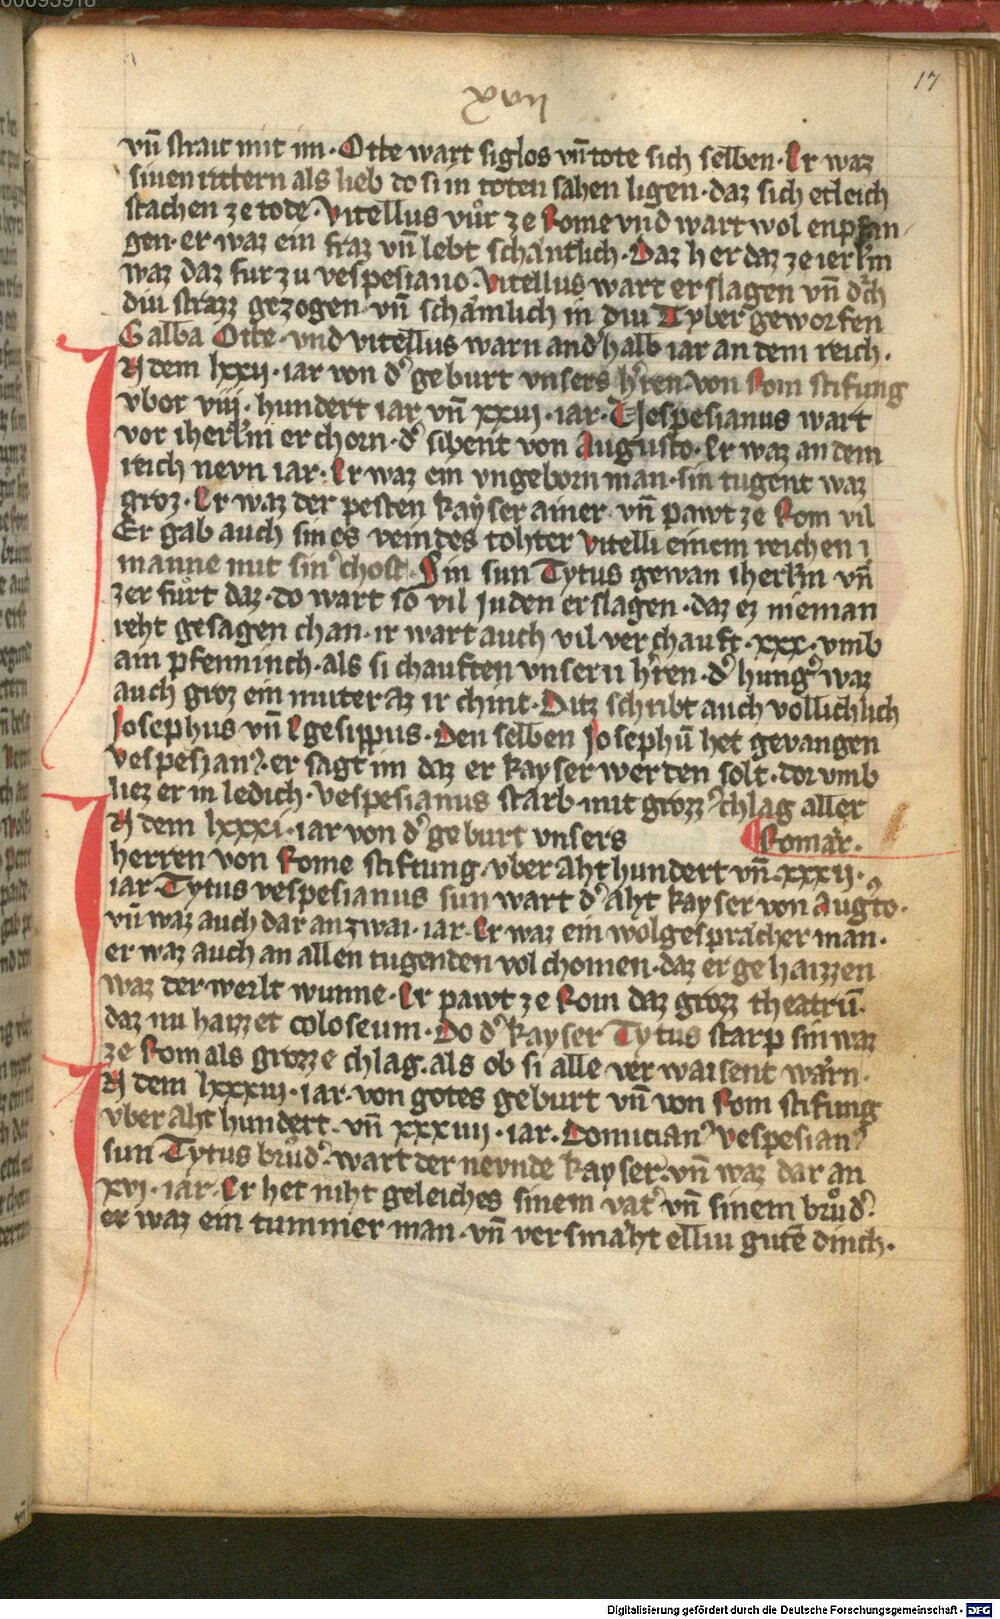 00093918
17
xvii
vn̄ strait mit im · Otte wart siglos vn̄ tote sich selben · Er waz
sinen rittern als lieb do si in toten sahen ligen · daz sich etleich
stachen ze tode · Vitellus vuͦr ze Rome vnd wart wol enpfan
gen · er waz ein fraz vn̄ lebt schantlich · Daz her daz ze ierłm
waz daz fur zu vespesiano · Vitellus wart erslagen vn̄ dͨh
diu strazz gezogen · vn̄ schaͤmlich in diu Tyber geworfen
Galba Otte · vnd vitellus warn and͛halb iar an dem reich ·
IN dem lxxij · iar von d͛ geburt vnsers h͛ren · von Rom stifung
vber viij · hundert iar vn̄ xxiij · iar · Vespesianus wart
vor iherłm erchorn · d͛ sibent von Augusto · Er waz an dem
reich nevn iar · Er waz ein vngeborn man · sin tugent waz
groz · Er waz der pesten kayser ainer · vn̄ pawt ze Rom vil
Er gab auch sines veindes tohter vitelli einem reichen
manne mit sin͛ chost · Sin sun Tytus gewan iherłm vn̄
zerfuͦrt daz · do wart so vil juden erslagen · daz ez nieman
reht gesagen chan · ir wart auch vil verchauft · xxx · vmb
ain pfenninch · als si chauften vnsern h͛ren · d͛ hung͛ waz
auch groz ein muter az ir chint · Ditz schribt auch vollichlich
Josephus vn̄ Egesippus · Den selben Josephū het gevangen
vespesian⁹ · er sagt im daz er kayser werden solt · dor vmb
liez er in ledich · Vespesianus starb mit grozz͛ chlag aller
IN dem lxxxi · iar von d͛ geburt vnsers Romār ·
herren von Rome stiftung · vber aht hundert vn̄ · xxxij ·
iar · Tytus vespesianus sun wart d͛ aht kayser von aug⁹to ·
vn̄ waz auch dar an zwai · iar · Er waz ein wolgespraͤcher man ·
er waz auch an allen tugenden volchomen · daz er gehaizzen
waz der werlt wunne · Er pawt ze Rom daz grozz theatrū ·
daz nu haizzet coloseum · Do d͛ kayser Tytus starp sin waz
ze Rom als grozze chlag · als ob si alle verwaisent waͤrn ·
IN dem lxxxiij · iar · von gotes geburt vn̄ von Rom stifung
vber aht hundert · vn̄ xxxiiij · iar · Domician⁹ vespesian⁹
sun Tytus bruͦd͛ · wart der nevnde kayser · vn̄ waz dar an
xvj · iar · Er het niht geleiches sinem vat͛ vn̄ sinem bruͦd͛ ·
er waz ein tummer man · vn̄ versmaͤht elliu gutē dinch ·
Digitalisierung gefördert durch die Deutsche Forschungsgemeinschaft - DFG